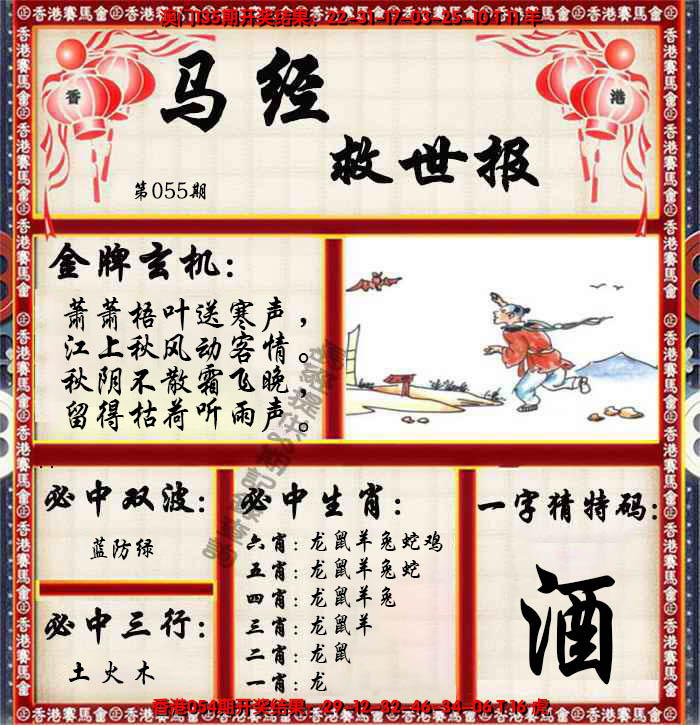 澳门135期开奖结果：22-31-17-03-25-10 T 11 羊
香 港
马经
救世报
第055期
金牌玄机：
萧萧梧叶送寒声，
江上秋风动客情。
秋阴不散霜飞晚，
留得枯荷听雨声。
必中双波：
蓝防绿
必中三行：
土火木
必中生肖：
六肖：龙鼠羊兔蛇鸡
五肖：龙鼠羊兔蛇
四肖：龙鼠羊兔
三肖：龙鼠羊
二肖：龙鼠
一肖：龙
一字猜特码：
酒
香港054期开奖结果：29-12-32-46-34-06 T 16 虎
香港賽馬會